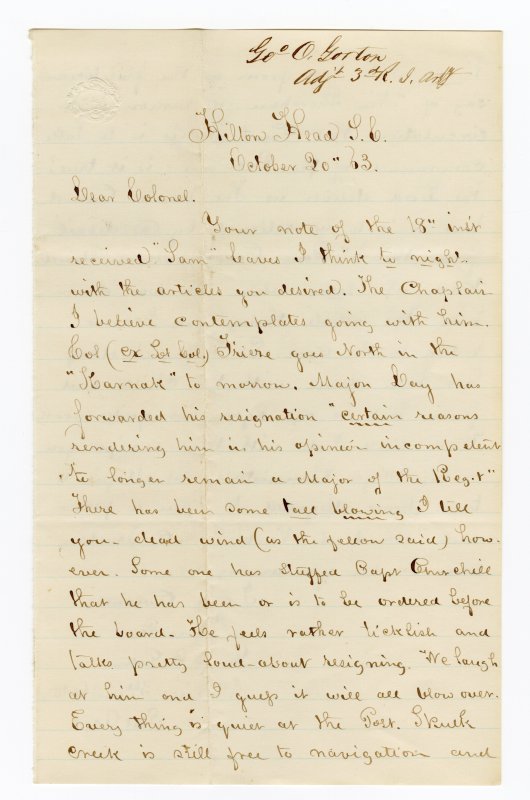 Geo O. Gorton
Adjt 3d R. I. Arty
Hilton Head S. C.
October 20" 63.
Dear Colonel.
Your note of the 18" inst
received. "Sam" leaves I think to night.
with the articles you desired. The Chaplain
I believe contemplates going with him.
Col (ex Lt Col.) Frieze goes North in the
"Karnak" to morrow. Major Day has
forwarded his resignation "certain reasons
rendering him in his opinion incompetent
to longer remain a Major of the Reg.t"
There has been some tall blowing I tell
you - dead wind (as the fellow said) how-
ever. Some one has stuffed Capt Churchill
that he has been or is to be ordered before
the board - He feels rather ticklish and
talks pretty loud - about resigning. We laugh
at him and I guess it will all blow over.
Every thing is quiet at the Post. Skull
creek is still free to navigation and